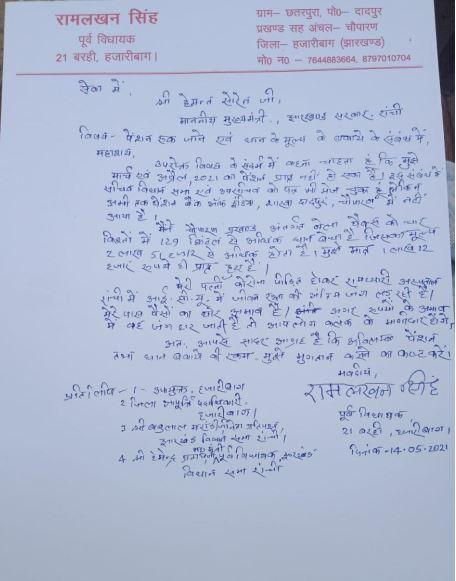 रामलखन सिंह
पूर्व विधायक
21 बरही, हजारीबाग।
ग्राम– छतरपुरा, पो0– दादपुर
प्रखण्ड सह अंचल– चौपारण
जिला– हजारीबाग (झारखण्ड)
मो0 न0 – 7644883664, 8797010704
सेवा में,
श्री हेमन्त सोरेन जी,
माननीय मुख्यमंत्री, झारखण्ड सरकार, रांची
विषय- पेंशन रुक जाने एवं धान के मूल्य के बकाये के संबंध में,
महाशय,
उपरोक्त विषय के संदर्भ में कहना चाहता हूँ कि मुझे
मार्च एवं अप्रैल, 2021 का पेंशन प्राप्त नहीं हो सका है। इस संबंध में
सचिव विधान सभा एवं अवर सचिव को पत्र भी भेज चुका हूँ लेकिन
अभी तक पेंशन बैंक ऑफ इंडिया, शाखा दादपुर, चौपारण में नहीं
आया है।
मैंने चौपारण प्रखण्ड अंतर्गत बेला पैक्स को चार
किश्तों में 129 क्विंटल से अधिक धान बेचा है जिसका मूल्य
2 लाख 51 हजार से अधिक होता है। मुझे मात्र 1 लाख 12
हजार रूपये ही प्राप्त हुए हैं।
मेरी पत्नी कोरोना पीड़ित होकर रामप्यारी अस्पताल
रांची में आई. सी. यू. में जीवन रक्षा की अंतिम जंग लड़ रही है।
मेरे पास पैसों का घोर अभाव है। अगर रूपयों के अभाव
में वह जंग हार जाती है तो आप लोग कलंक के भागीदार होंगे,
अतः आपसे सादर आग्रह है कि अविलम्ब पेंशन
तथा धान बकाये की रकम मुझे भुगतान कराने का कष्ट करें।
भवदीय,
रामलखन सिंह
पूर्व विधायक
21 बरही, हजारीबाग।
दिनांक-14.05.2021
प्रतिलिपि- 1- उपायुक्त, हजारीबाग
2 जिला आपूर्ति पदाधिकारी,
हजारीबाग।
3 श्री बाबूलाल मरांडी
झारखंड विधान सभा रांची।
4 श्री हेमेन्द्र प्रताप पूर्व विधायक, झारखंड
विधान सभा रांची